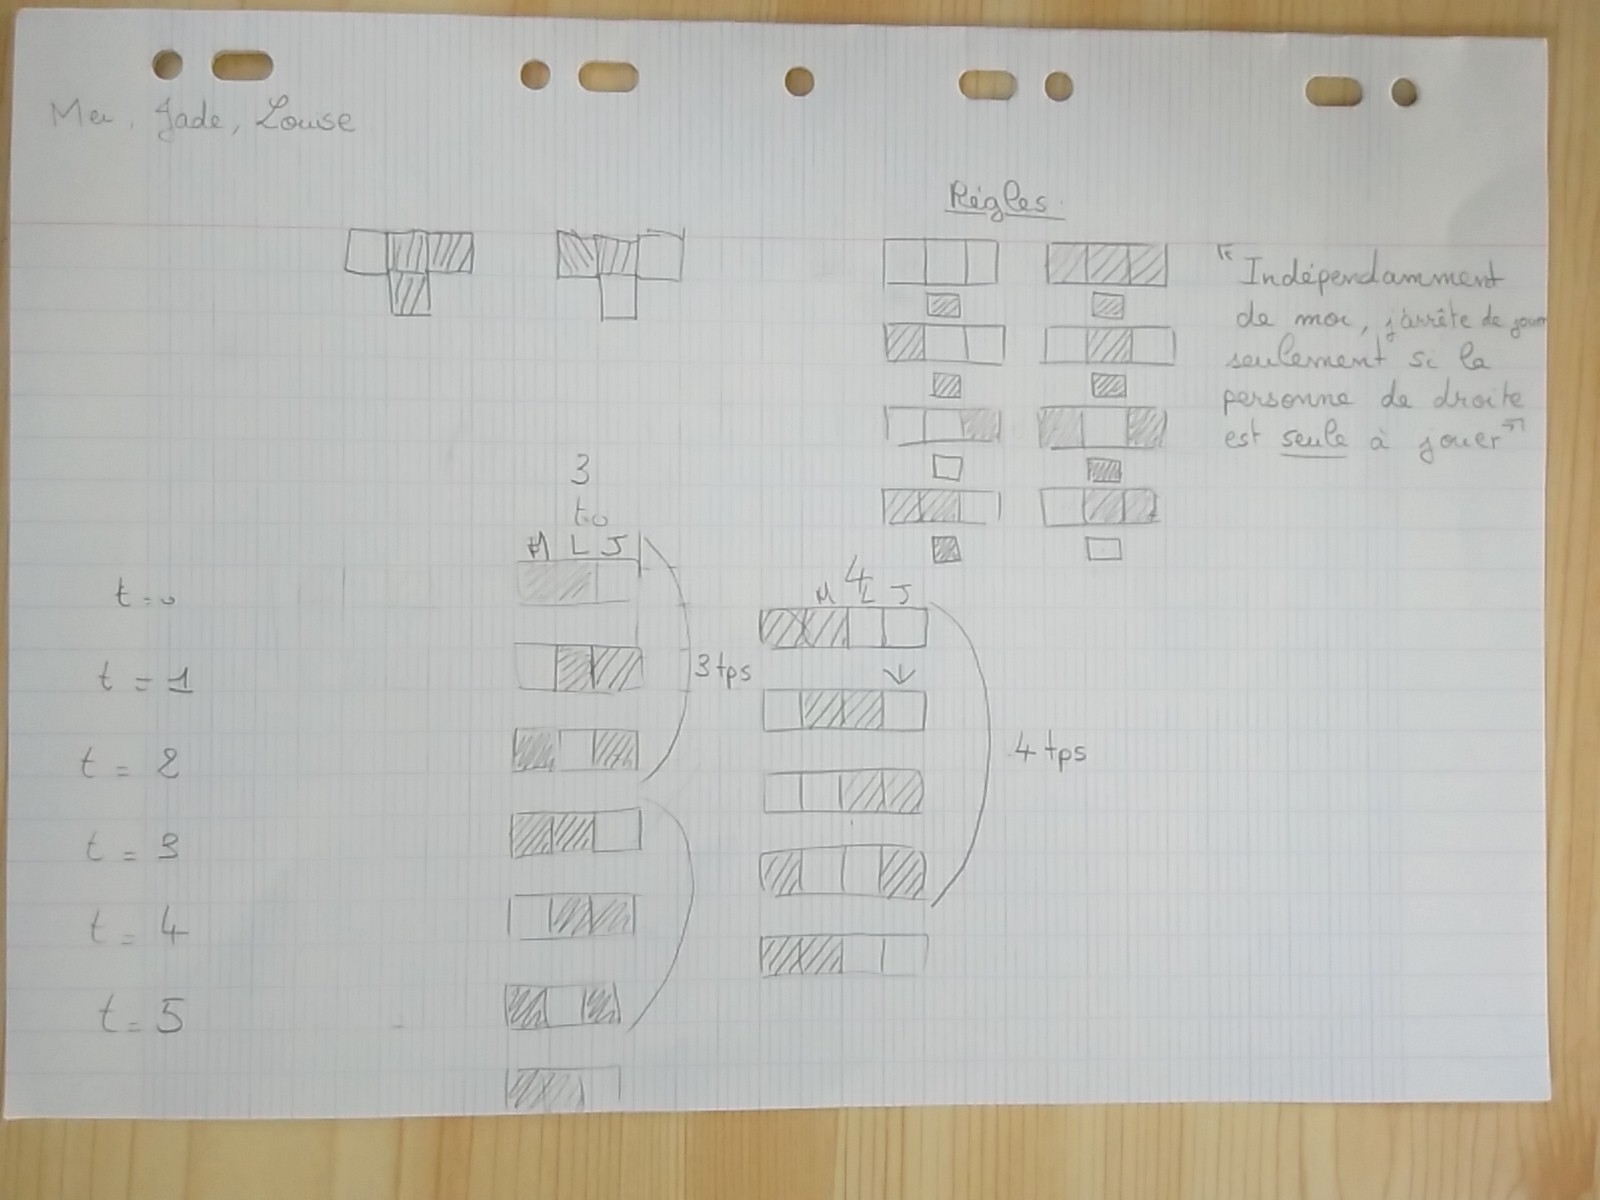 Jade, Louse
Règles
"Indépendamment
de moi, j'arrête de jouer
seulement si la
personne de droite
est seule à jouer"
3
t=0
M L J
4
M L J
t=0
t = 1
3 tps
t = 2
4 tps
t = 3
t = 4
t = 5